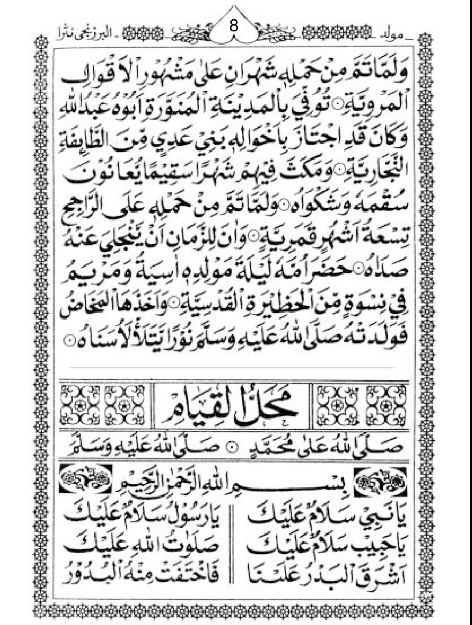 مولد
8
البرزنجي نثرا
وَلَمَّا تَمَّ مِنْ حَمْلِهِ شَهْرَانِ عَلَى مَشْهُورِ الْأَقْوَالِ
الْمَرْوِيَّةِ ۞ تُوُفِّيَ بِالْمَدِينَةِ الْمُنَوَّرَةِ أَبُوهُ عَبْدُ اللهِ
وَكَانَ قَدِ اجْتَازَ بِأَخْوَالِهِ بَنِي عَدِيٍّ مِنَ الطَّائِفَةِ
النَّجَّارِيَّةِ ۞ وَمَكَثَ فِيهِمْ شَهْرًا سَقِيمًا يُعَانُونَ
سُقْمَهُ وَشَكْوَاهُ ۞ وَلَمَّا تَمَّ مِنْ حَمْلِهِ عَلَى الرَّاجِحِ
تِسْعَةُ أَشْهُرٍ قَمَرِيَّةٍ ۞ وَآنَ لِلزَّمَانِ أَنْ يَنْجَلِيَ عَنْهُ
صَدَاهُ ۞ حَضَرَ أُمَّهُ لَيْلَةَ مَوْلِدِهِ آسِيَةُ وَمَرْيَمُ
فِي نِسْوَةٍ مِنَ الْحَظِيرَةِ الْقُدْسِيَّةِ ۞ وَأَخَذَهَا الْمَخَاضُ
فَوَلَدَتْهُ صَلَّى اللهُ عَلَيْهِ وَسَلَّمَ نُورًا يَتَلَأْلَأُ سَنَاهُ ۞
مَحَلُّ الْقِيَامِ
صَلَّى اللهُ عَلَى مُحَمَّدٍ ۞ صَلَّى اللهُ عَلَيْهِ وَسَلَّمَ
بِسْمِ اللهِ الرَّحْمٰنِ الرَّحِيمِ
يَا نَبِي سَلَامٌ عَلَيْكَ يَا رَسُولْ سَلَامٌ عَلَيْكَ
يَا حَبِيبْ سَلَامٌ عَلَيْكَ صَلَوَاتُ اللهِ عَلَيْكَ
أَشْرَقَ الْبَدْرُ عَلَيْنَا فَاخْتَفَتْ مِنْهُ الْبُدُورُ